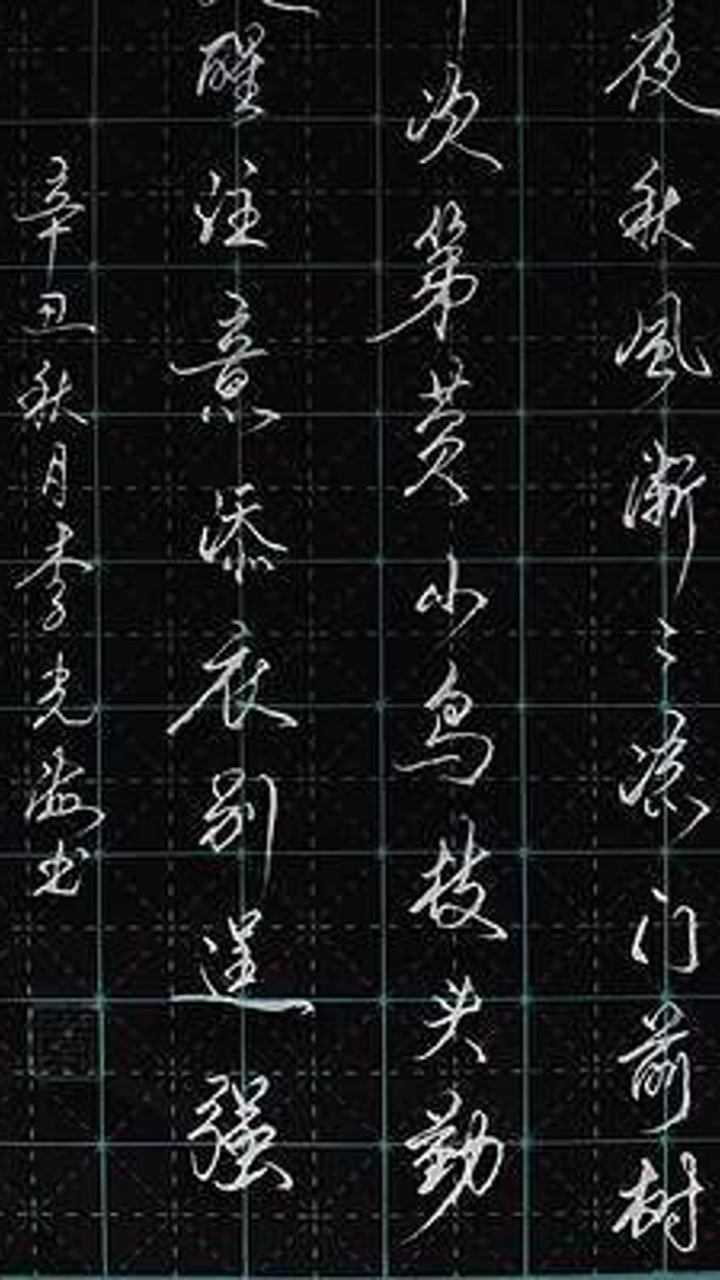 夜秋風渐〻凉门前树
次第黄小鸟枝头勤
醒注意添衣别逞强
辛丑秋月李光益书